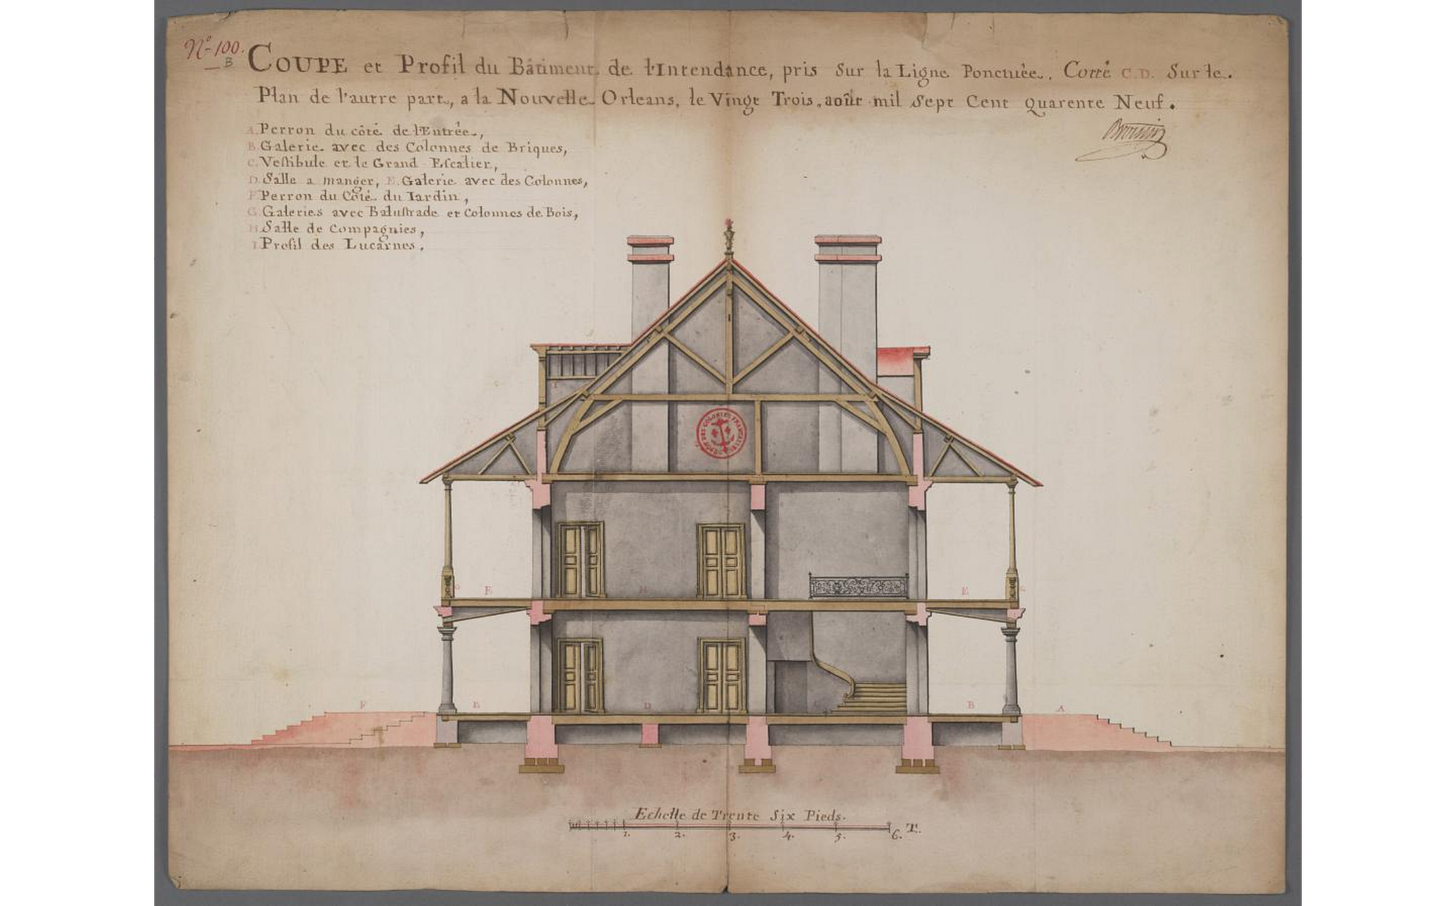 Nº 100.
B
COUPE et Profil du Bâtiment de l'Intendance, pris Sur la Ligne Ponctuèe, Cotté C.D. Sur le
Plan de l'autre part, a la Nouvelle Orleans, le Vingt Trois, aoûst mil Sept Cent Quarente Neuf.
Broutin
A. Perron du côté de l'Entrée,
B. Galerie avec des Colonnes de Briques,
C. Vestibule et le Grand Escalier,
D. Salle a manger, E. Galerie avec des Colonnes,
F. Perron du Côté du Iardin,
G. Galeries avec Balustrade et Colonnes de Bois,
H. Salle de Compagnies,
I. Profil des Lucarnes.
E H E
F B D B A
Echelle de Trente Six Pieds.
1. 2. 3. 4. 5. 6. T.